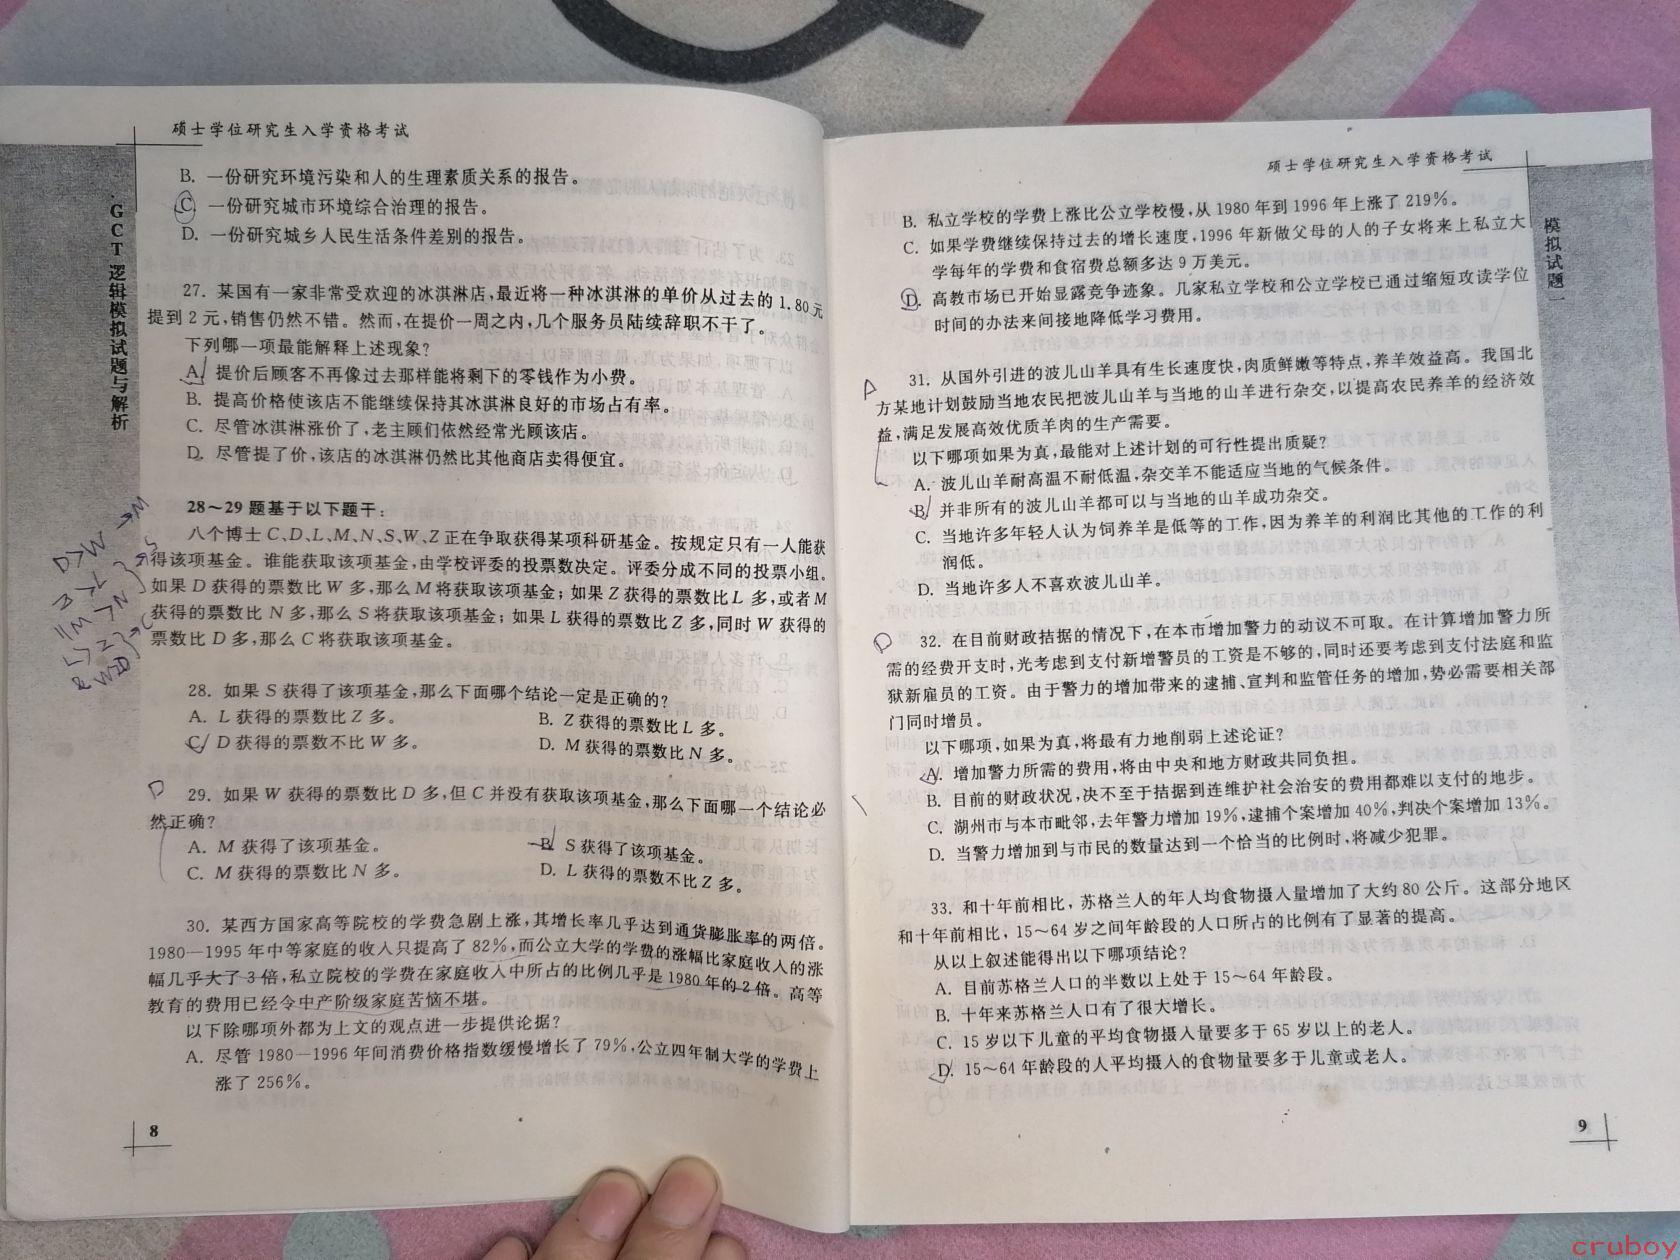 硕士学位研究生入学资格考试
GCT 逻辑模拟试题与解析
B. 一份研究环境污染和人的生理素质关系的报告。
C. 一份研究城市环境综合治理的报告。
D. 一份研究城乡人民生活条件差别的报告。
27. 某国有一家非常受欢迎的冰淇淋店,最近将一种冰淇淋的单价从过去的1.80元
提到2元,销售仍然不错。然而,在提价一周之内,几个服务员陆续辞职不干了。
下列哪一项最能解释上述现象?
A. 提价后顾客不再像过去那样能将剩下的零钱作为小费。
B. 提高价格使该店不能继续保持其冰淇淋良好的市场占有率。
C. 尽管冰淇淋涨价了,老主顾们依然经常光顾该店。
D. 尽管提了价,该店的冰淇淋仍然比其他商店卖得便宜。
28～29题基于以下题干:
八个博士C、D、L、M、N、S、W、Z正在争取获得某项科研基金。按规定只有一人能获
得该项基金。谁能获取该项基金,由学校评委的投票数决定。评委分成不同的投票小组。
如果D获得的票数比W多,那么M将获取该项基金;如果Z获得的票数比L多,或者M
获得的票数比N多,那么S将获取该项基金;如果L获得的票数比Z多,同时W获得的
票数比D多,那么C将获取该项基金。
D>W→M
28. 如果S获得了该项基金,那么下面哪个结论一定是正确的?
A. L获得的票数比Z多。 B. Z获得的票数比L多。
C. D获得的票数不比W多。 D. M获得的票数比N多。
D
29. 如果W获得的票数比D多,但C并没有获取该项基金,那么下面哪一个结论必
然正确?
A. M获得了该项基金。 B. S获得了该项基金。
C. M获得的票数比N多。 D. L获得的票数不比Z多。
30. 某西方国家高等院校的学费急剧上涨,其增长率几乎达到通货膨胀率的两倍。
1980—1995年中等家庭的收入只提高了82%,而公立大学的学费的涨幅比家庭收入的涨
幅几乎大了3倍,私立院校的学费在家庭收入中所占的比例几乎是1980年的2倍。高等
教育的费用已经令中产阶级家庭苦恼不堪。
以下除哪项外都为上文的观点进一步提供论据?
A. 尽管1980—1996年间消费价格指数缓慢增长了79%,公立四年制大学的学费上
涨了256%。
8
硕士学位研究生入学资格考试
模拟试题一
B. 私立学校的学费上涨比公立学校慢,从1980年到1996年上涨了219%。
C. 如果学费继续保持过去的增长速度,1996年新做父母的人的子女将来上私立大
学每年的学费和食宿费总额多达9万美元。
D. 高教市场已开始显露竞争迹象。几家私立学校和公立学校已通过缩短攻读学位
时间的办法来间接地降低学习费用。
A
31. 从国外引进的波儿山羊具有生长速度快,肉质鲜嫩等特点,养羊效益高。我国北
方某地计划鼓励当地农民把波儿山羊与当地的山羊进行杂交,以提高农民养羊的经济效
益,满足发展高效优质羊肉的生产需要。
以下哪项如果为真,最能对上述计划的可行性提出质疑?
A. 波儿山羊耐高温不耐低温,杂交羊不能适应当地的气候条件。
B. 并非所有的波儿山羊都可以与当地的山羊成功杂交。
C. 当地许多年轻人认为饲养羊是低等的工作,因为养羊的利润比其他的工作的利
润低。
D. 当地许多人不喜欢波儿山羊。
D
32. 在目前财政拮据的情况下,在本市增加警力的动议不可取。在计算增加警力所
需的经费开支时,光考虑到支付新增警员的工资是不够的,同时还要考虑到支付法庭和监
狱新雇员的工资。由于警力的增加带来的逮捕、宣判和监管任务的增加,势必需要相关部
门同时增员。
以下哪项,如果为真,将最有力地削弱上述论证?
A. 增加警力所需的费用,将由中央和地方财政共同负担。
B. 目前的财政状况,决不至于拮据到连维护社会治安的费用都难以支付的地步。
C. 湖州市与本市毗邻,去年警力增加19%,逮捕个案增加40%,判决个案增加13%。
D. 当警力增加到与市民的数量达到一个恰当的比例时,将减少犯罪。
33. 和十年前相比,苏格兰人的年人均食物摄入量增加了大约80公斤。这部分地区
和十年前相比,15～64岁之间年龄段的人口所占的比例有了显著的提高。
从以上叙述能得出以下哪项结论?
A. 目前苏格兰人口的半数以上处于15～64年龄段。
B. 十年来苏格兰人口有了很大增长。
C. 15岁以下儿童的平均食物摄入量要多于65岁以上的老人。
D. 15～64年龄段的人平均摄入的食物量要多于儿童或老人。
9
cruboy